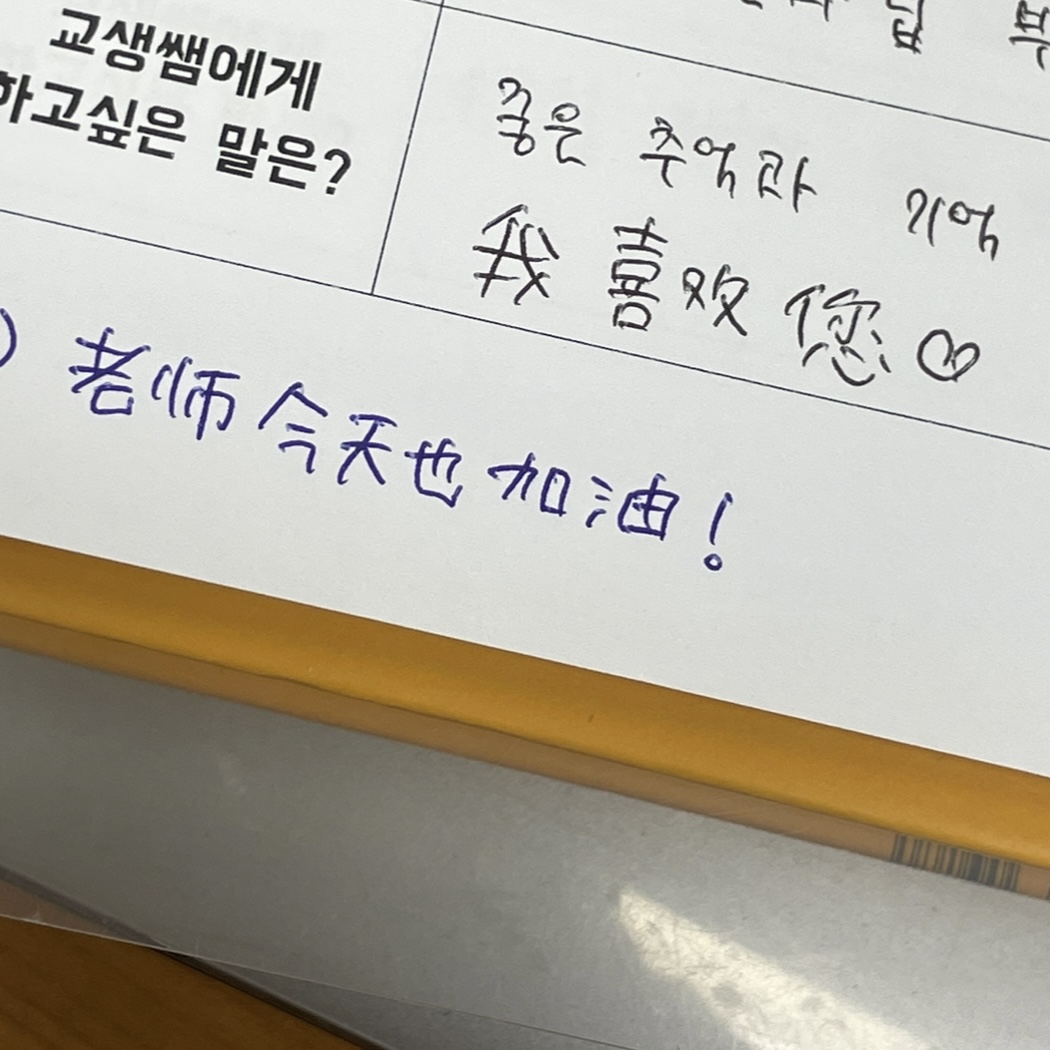 교생쌤에게
하고싶은 말은?
좋은 추억과 기억
我喜欢您♡
老师今天也加油!